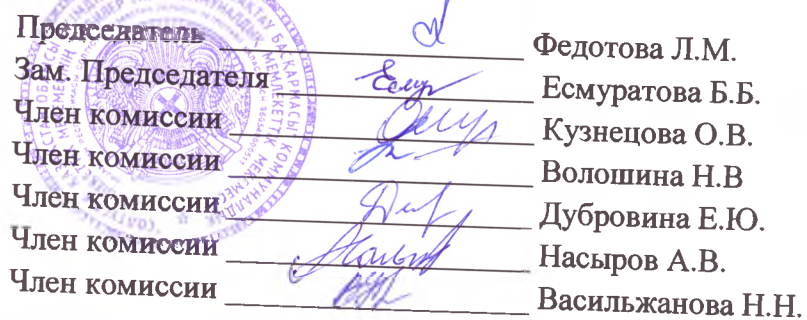 Председатель Федотова Л.М.
Зам. Председателя Есмуратова Б.Б.
Член комиссии Кузнецова О.В.
Член комиссии Волошина Н.В
Член комиссии Дубровина Е.Ю.
Член комиссии Насыров А.В.
Член комиссии Васильжанова Н.Н.